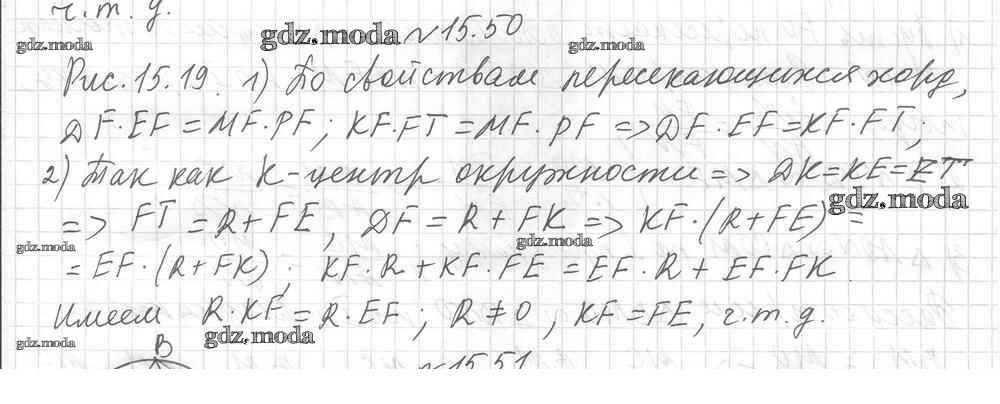 ч.т.д.
gdz.moda gdz.moda №15.50 gdz.moda
Рис. 15.19. 1) По свойствам пересекающихся хорд,
DF·EF = MF·PF; KF·FT = MF·PF => DF·EF = KF·FT;
2) Так как K-центр окружности => DK=KE=ET
gdz.moda
=> FT = R + FE, DF = R + FK => KF·(R+FE) =
gdz.moda gdz.moda
= EF·(R+FK); KF·R + KF·FE = EF·R + EF·FK
Имеем R·KF = R·EF; R ≠ 0, KF = FE, ч.т.д.
gdz.moda gdz.moda
B №15.51